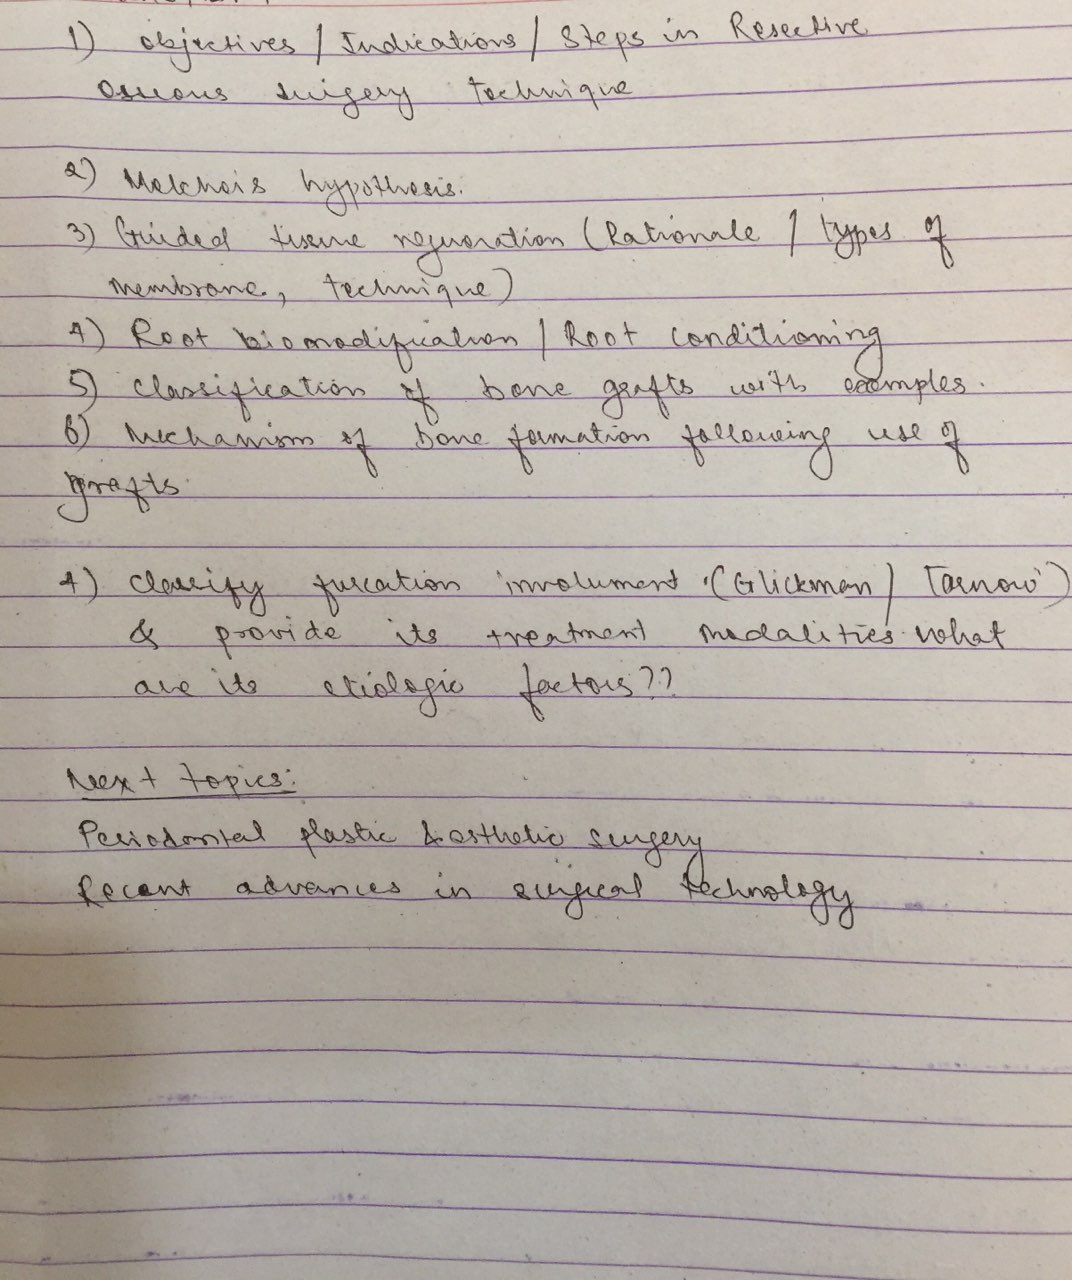 1) objectives / Indications / Steps in Resective
osseous surgery technique
2) Melchers hypothesis.
3) Guided tissue regeneration (Rationale / types of
membrane, technique)
4) Root biomodification / Root conditioning
5) classification of bone grafts with examples.
6) Mechanism of bone formation following use of
grafts.
7) classify furcation involvment (Glickman / Tarnow)
& provide its treatment modalities. what
are its etiologic factors??
Next topics:
Periodontal plastic & esthetic surgery
Recent advances in surgical technology